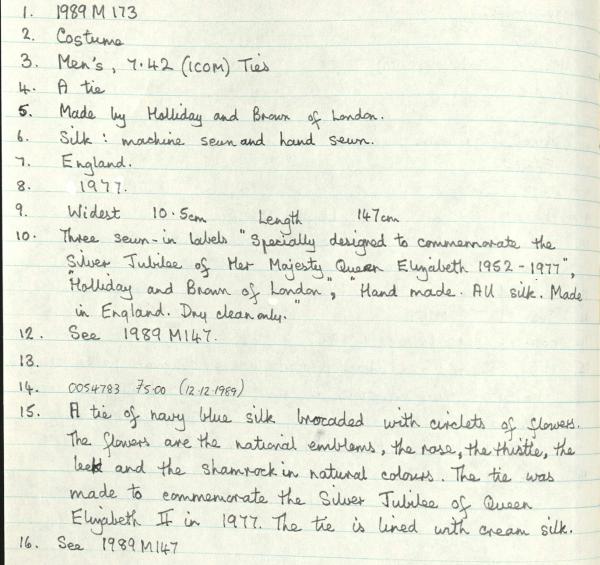 1. 1989 M 173
2. Costume
3. Men's, 7.42 (ICOM) Ties
4. A tie
5. Made by Holliday and Brown of London.
6. Silk : machine sewn and hand sewn.
7. England.
8. 1977.
9. Widest 10.5cm Length 147cm
10. Three sewn-in labels "Specially designed to commemorate the
Silver Jubilee of Her Majesty Queen Elizabeth 1952 - 1977",
"Holliday and Brown of London", "Hand made. All silk. Made
in England. Dry clean only."
12. See 1989 M147.
13.
14. 0054783 75.00 (12.12.1989)
15. A tie of navy blue silk brocaded with circlets of flowers.
The flowers are the national emblems, the rose, the thistle, the
leek and the shamrock in natural colours. The tie was
made to commemorate the Silver Jubilee of Queen
Elizabeth II in 1977. The tie is lined with cream silk.
16. See 1989 M147